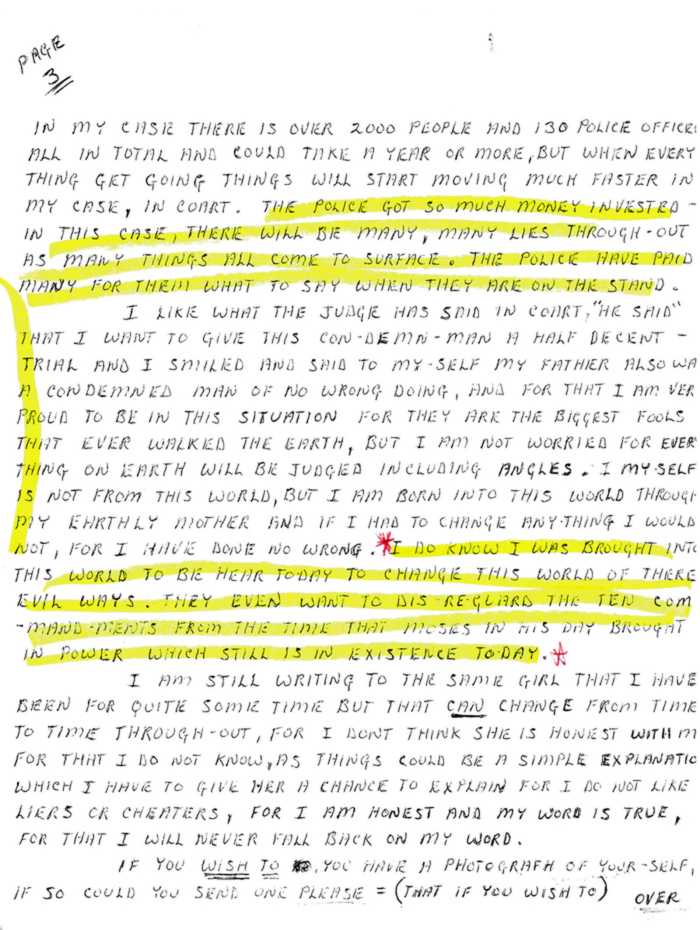 PAGE
3
IN MY CASE THERE IS OVER 2000 PEOPLE AND 130 POLICE OFFICE
ALL IN TOTAL AND COULD TAKE A YEAR OR MORE, BUT WHEN EVERY
THING GET GOING THINGS WILL START MOVING MUCH FASTER IN
MY CASE, IN COART. THE POLICE GOT SO MUCH MONEY INVESTED -
IN THIS CASE, THERE WILL BE MANY, MANY LIES THROUGH-OUT
AS MANY THINGS ALL COME TO SURFACE. THE POLICE HAVE PAID
MANY FOR THEM WHAT TO SAY WHEN THEY ARE ON THE STAND.
I LIKE WHAT THE JUDGE HAS SAID IN COART, "HE SAID"
THAT I WANT TO GIVE THIS CON-DEMN-MAN A HALF DECENT -
TRIAL AND I SMILED AND SAID TO MY-SELF MY FATHER ALSO WA
A CONDEMNED MAN OF NO WRONG DOING, AND FOR THAT I AM VER
PROUD TO BE IN THIS SITUATION FOR THEY ARE THE BIGGEST FOOLS
THAT EVER WALKED THE EARTH, BUT I AM NOT WORRIED FOR EVER
THING ON EARTH WILL BE JUDGED INCLUDING ANGLES. I MY-SELF
IS NOT FROM THIS WORLD, BUT I AM BORN INTO THIS WORLD THROUGH
MY EARTHLY MOTHER AND IF I HAD TO CHANGE ANY-THING I WOULD
NOT, FOR I HAVE DONE NO WRONG. *I DO KNOW I WAS BROUGHT INTO
THIS WORLD TO BE HEAR TODAY TO CHANGE THIS WORLD OF THERE
EVIL WAYS. THEY EVEN WANT TO DIS-RE-GUARD THE TEN COM
-MAND-MENTS FROM THE TIME THAT MOSES IN HIS DAY BROUGHT
IN POWER WHICH STILL IS IN EXISTENCE TO-DAY. *
I AM STILL WRITING TO THE SAME GIRL THAT I HAVE
BEEN FOR QUITE SOME TIME BUT THAT CAN CHANGE FROM TIME
TO TIME THROUGH-OUT, FOR I DONT THINK SHE IS HONEST WITH M
FOR THAT I DO NOT KNOW, AS THINGS COULD BE A SIMPLE EXPLANATIO
WHICH I HAVE TO GIVE HER A CHANCE TO EXPLAIN FOR I DO NOT LIKE
LIERS OR CHEATERS, FOR I AM HONEST AND MY WORD IS TRUE,
FOR THAT I WILL NEVER FALL BACK ON MY WORD.
IF YOU WISH TO , YOU HAVE A PHOTOGRAFH OF YOUR-SELF,
IF SO COULD YOU SEND ONE PLEASE = (THAT IF YOU WISH TO)
OVER